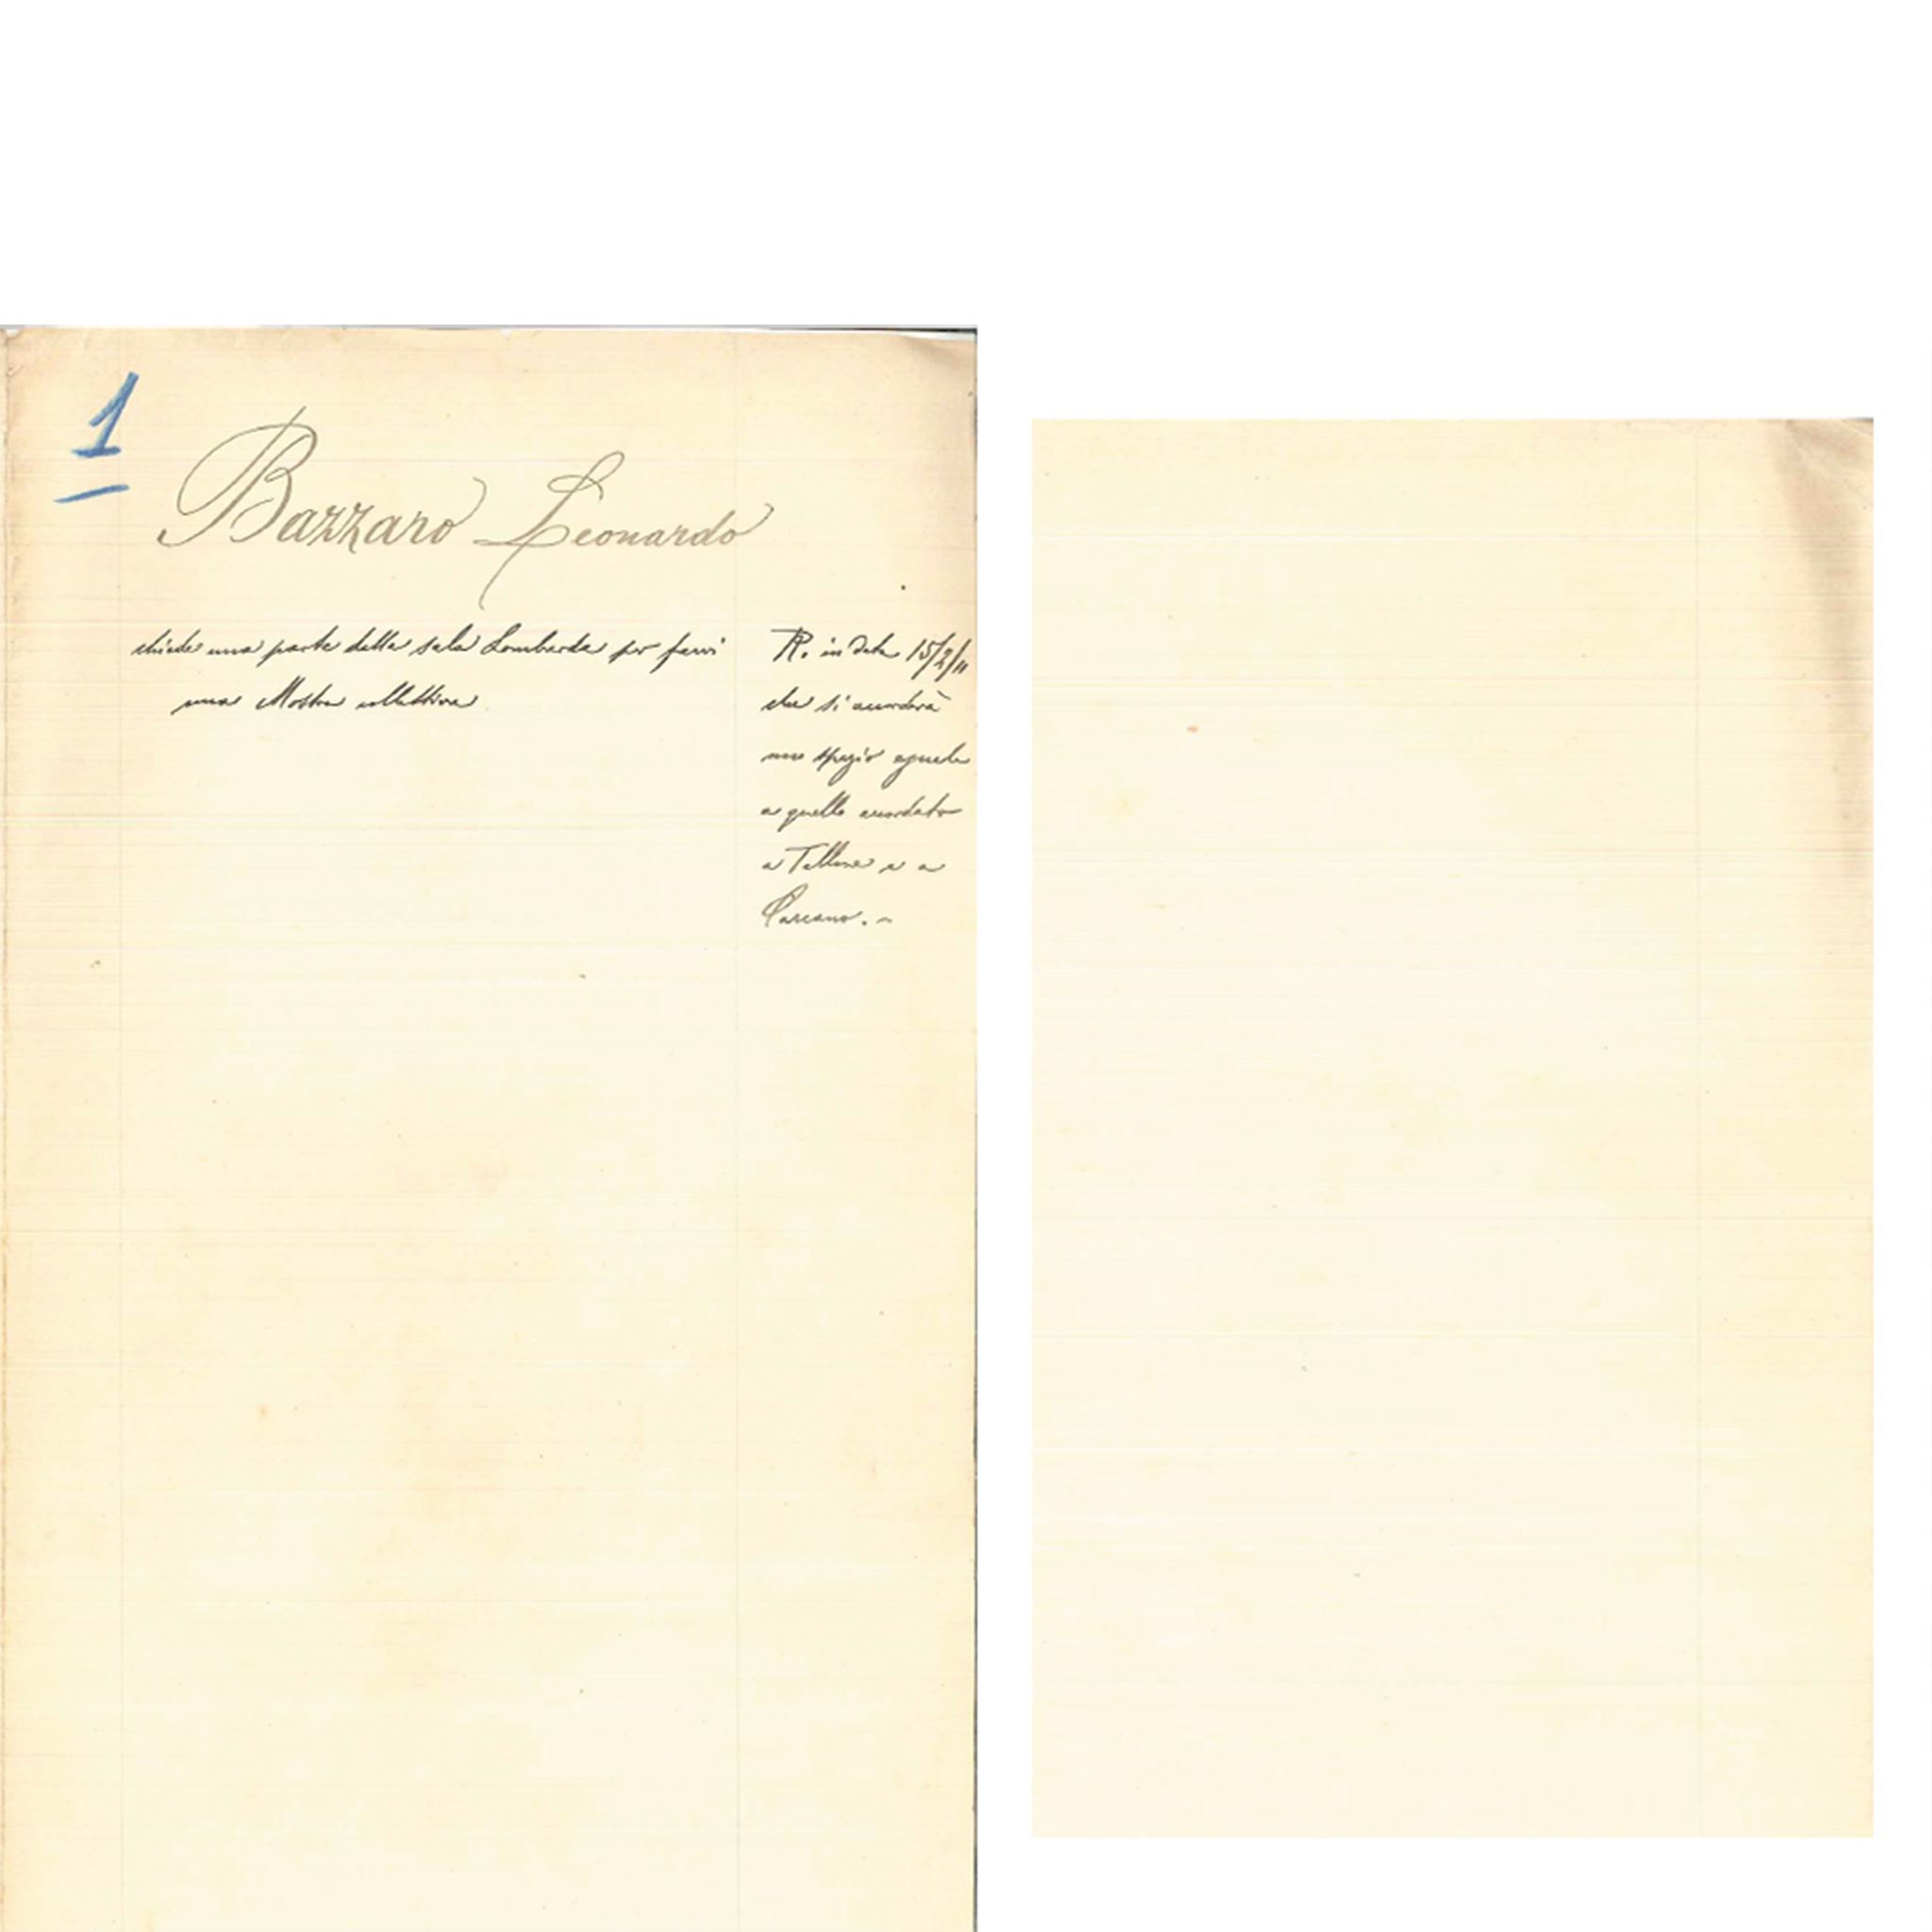 1
Bazzaro Leonardo
chiede una parte della sala Lombarda per farvi
una Mostra collettiva
R. in data 15/2/11
che si accorderà
uno spazio eguale
a quello accordato
a Tallone e a
Carcano. -